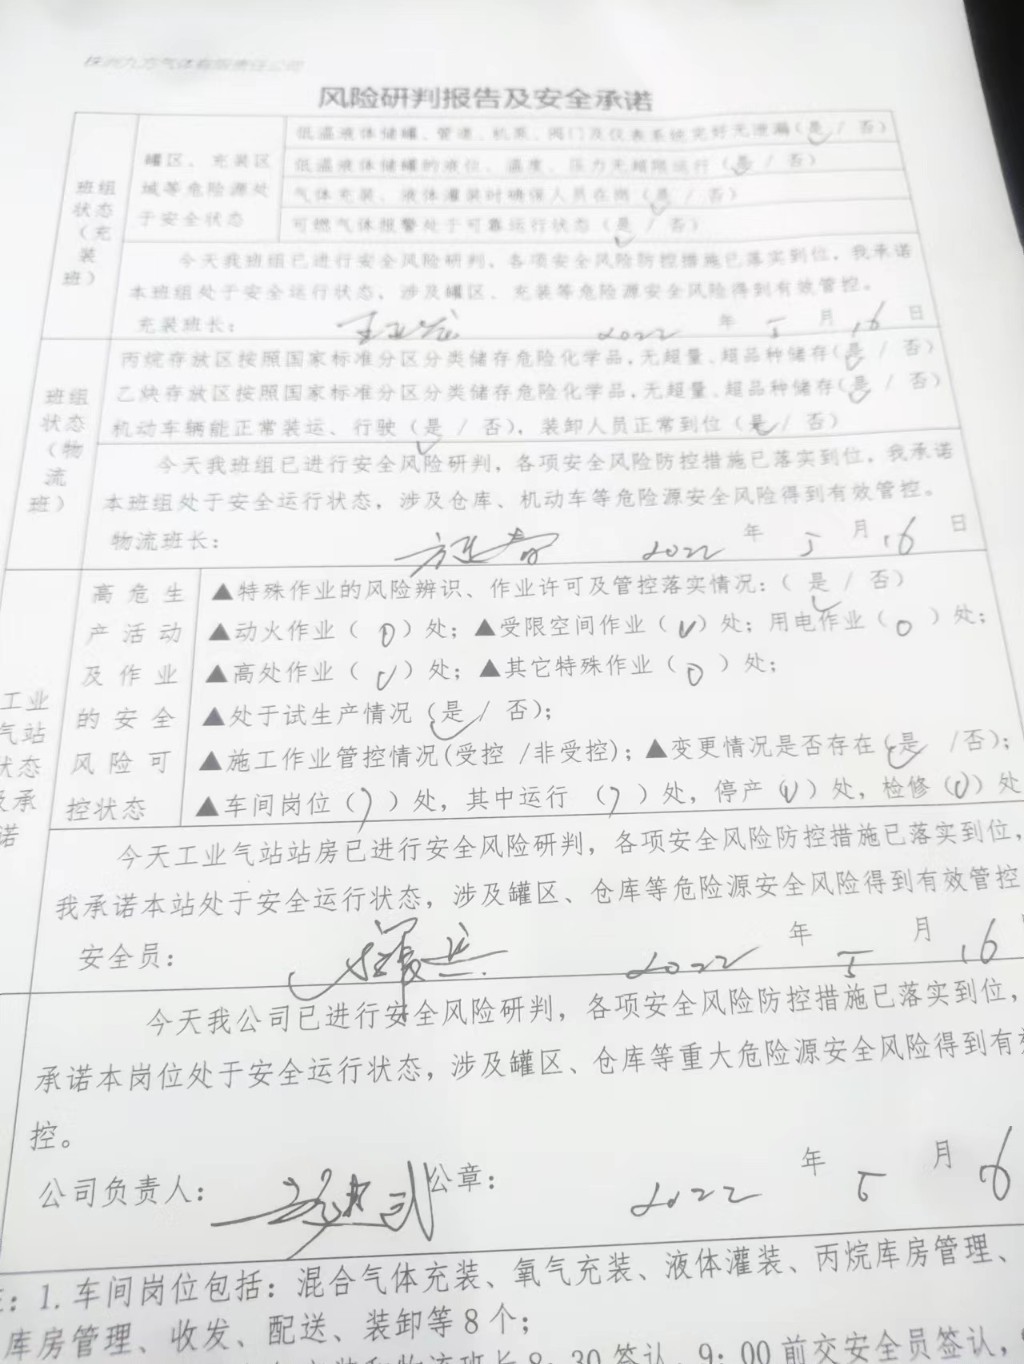 株洲九方气体有限责任公司
风险研判报告及安全承诺
班组状态（充装班）
罐区、充装区域等危险源处于安全状态
低温液体储罐、管道、机泵、阀门及仪表系统完好无泄漏（是 / 否）
低温液体储罐的液位、温度、压力无超限运行（是 / 否）
气体充装、液体灌装时确保人员在岗（是 / 否）
可燃气体报警处于可靠运行状态（是 / 否）
今天我班组已进行安全风险研判，各项安全风险防控措施已落实到位，我承诺
本班组处于安全运行状态，涉及罐区、充装等危险源安全风险得到有效管控。
充装班长： 2022 年 5 月 16 日
班组状态（物流班）
丙烷存放区按照国家标准分区分类储存危险化学品，无超量、超品种储存（是 / 否）
乙炔存放区按照国家标准分区分类储存危险化学品，无超量、超品种储存（是 / 否）
机动车辆能正常装运、行驶（是 / 否），装卸人员正常到位（是 / 否）
今天我班组已进行安全风险研判，各项安全风险防控措施已落实到位，我承诺
本班组处于安全运行状态，涉及仓库、机动车等危险源安全风险得到有效管控。
物流班长： 2022 年 5 月 16 日
工业气站状态及承诺
高危生产活动及作业的安全风险可控状态
▲特殊作业的风险辨识、作业许可及管控落实情况：（ 是 / 否）
▲动火作业（ 0 ）处；▲受限空间作业（ 0 ）处；用电作业（ 0 ）处；
▲高处作业（ 0 ）处；▲其它特殊作业（ 0 ）处；
▲处于试生产情况（是 / 否）；
▲施工作业管控情况(受控 /非受控)；▲变更情况是否存在（是 /否）；
▲车间岗位（7 ）处，其中运行 （7 ）处，停产（0）处，检修（0）处
今天工业气站站房已进行安全风险研判，各项安全风险防控措施已落实到位，
我承诺本站处于安全运行状态，涉及罐区、仓库等危险源安全风险得到有效管控
安全员： 2022 年 5 月 16
今天我公司已进行安全风险研判，各项安全风险防控措施已落实到位，
承诺本岗位处于安全运行状态，涉及罐区、仓库等重大危险源安全风险得到有效
控。
公司负责人： 公章： 2022 年 5 月 16
注：1.车间岗位包括：混合气体充装、氧气充装、液体灌装、丙烷库房管理、
库房管理、收发、配送、装卸等8个；
装和物流班长8：30签认，9：00前交安全员签认，